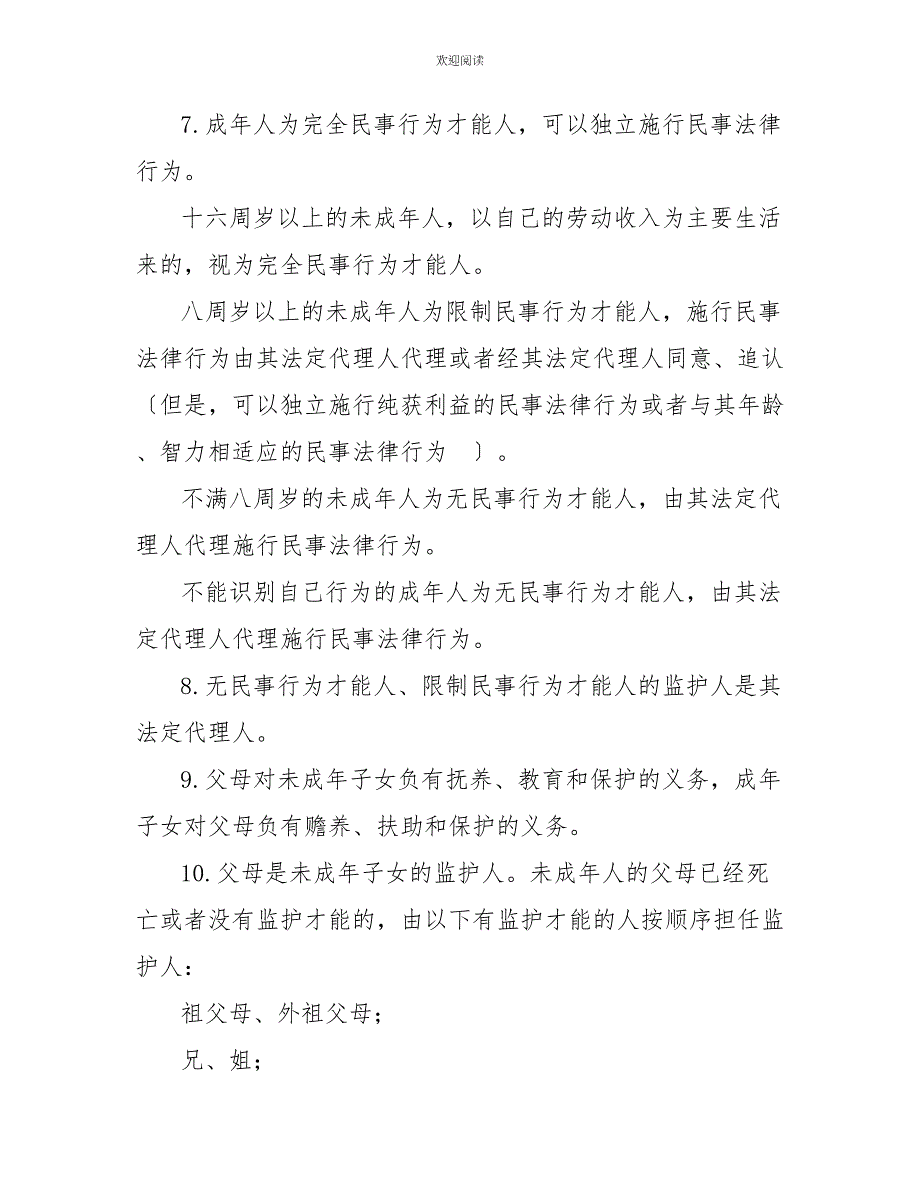 欢迎阅读
7.成年人为完全民事行为才能人，可以独立施行民事法律
行为。
十六周岁以上的未成年人，以自己的劳动收入为主要生活
来的，视为完全民事行为才能人。
八周岁以上的未成年人为限制民事行为才能人，施行民事
法律行为由其法定代理人代理或者经其法定代理人同意、追认
〔但是，可以独立施行纯获利益的民事法律行为或者与其年龄
、智力相适应的民事法律行为 〕。
不满八周岁的未成年人为无民事行为才能人，由其法定代
理人代理施行民事法律行为。
不能识别自己行为的成年人为无民事行为才能人，由其法
定代理人代理施行民事法律行为。
8.无民事行为才能人、限制民事行为才能人的监护人是其
法定代理人。
9.父母对未成年子女负有抚养、教育和保护的义务，成年
子女对父母负有赡养、扶助和保护的义务。
10.父母是未成年子女的监护人。未成年人的父母已经死
亡或者没有监护才能的，由以下有监护才能的人按顺序担任监
护人：
祖父母、外祖父母；
兄、姐；